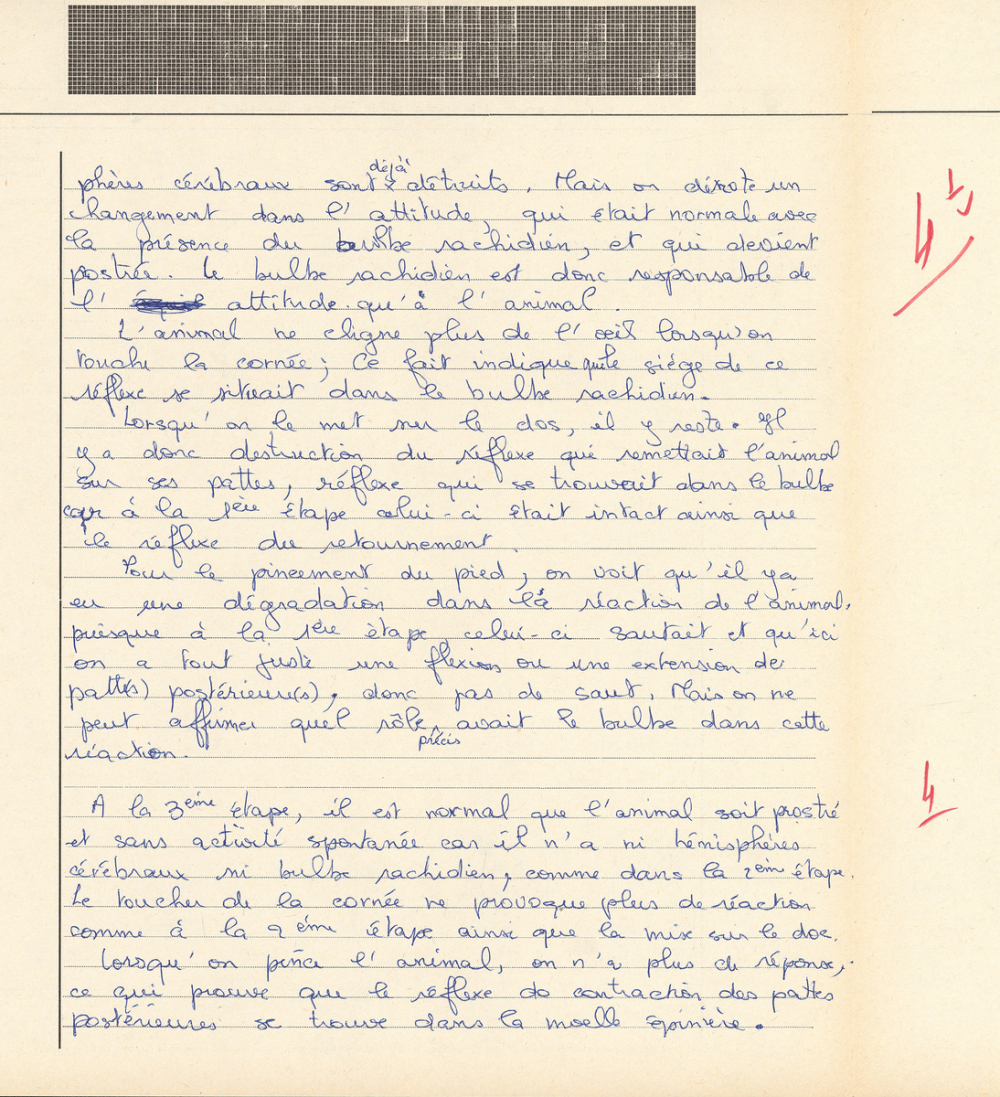 phères cérébraux sont déjà détruits. Mais on dénote un
changement dans l'attitude, qui était normale avec
la présence du bulbe rachidien, et qui devient
postrée. Le bulbe rachidien est donc responsable de
l' attitude qu'à l'animal.
L'animal ne cligne plus de l'oeil lorsqu'on
touche la cornée; Ce fait indique que le siège de ce
réflexe se situait dans le bulbe rachidien.
Lorsqu'on le met sur le dos, il y reste. Il
y a donc destruction du réflexe qui remettait l'animal
sur ses pattes, réflexe qui se trouvait dans le bulbe
car à la 1ère étape celui-ci était intact ainsi que
le réflexe du retournement.
Pour le pincement du pied, on voit qu'il y a
eu une dégradation dans la réaction de l'animal,
puisque à la 1ère étape celui-ci sautait et qu'ici
on a tout juste une flexion ou une extension de
patte(s) postérieure(s), donc pas de saut. Mais on ne
peut affirmer quel rôle précis avait le bulbe dans cette
réaction.
A la 3ème étape, il est normal que l'animal soit prostré
et sans activité spontanée car il n'a ni hémisphères
cérébraux ni bulbe rachidien, comme dans la 2ème étape.
Le toucher de la cornée ne provoque plus de réaction
comme à la 2ème étape ainsi que la mise sur le dos.
Lorsqu'on pince l'animal, on n'a plus de réponse,
ce qui prouve que le réflexe de contraction des pattes
postérieures se trouve dans la moelle épinière.
4